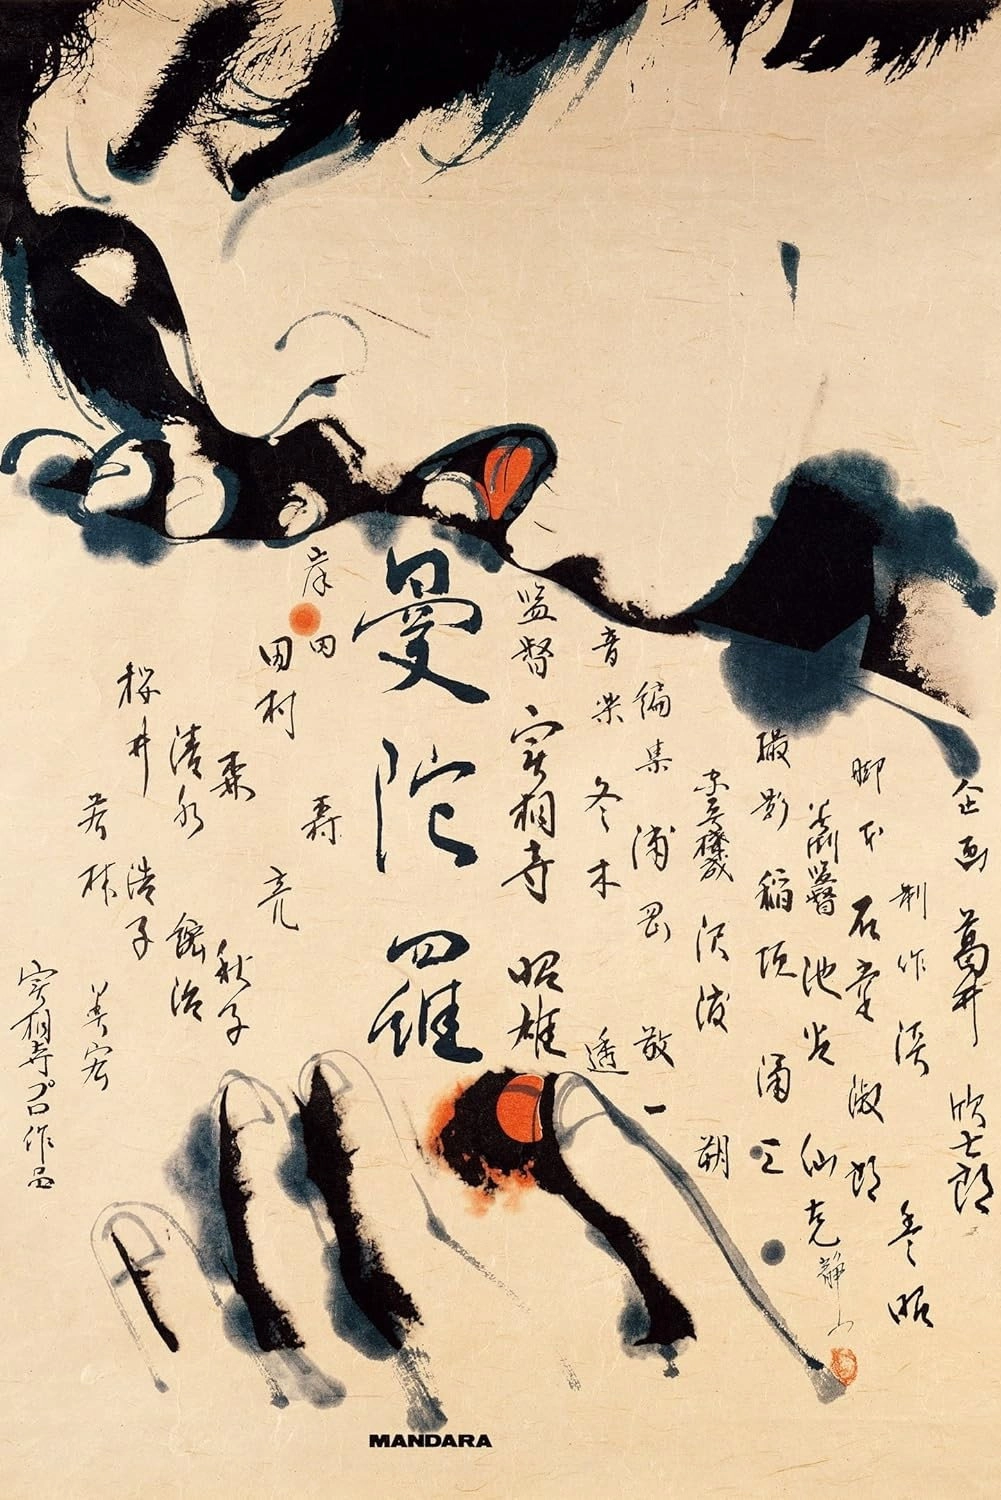 企画 葛井欣士郎
制作 淡豊昭
脚本 石堂淑郎
美術監督 池谷仙克
静山
撮影 稲垣涌三
沢渡朔
編集 浦岡敬一
音楽 冬木透
監督 実相寺昭雄
曼陀羅
岸田森
田村亮
森秋子
清水紘治
桜井浩子
若林美宏
実相寺プロ作品
MANDARA